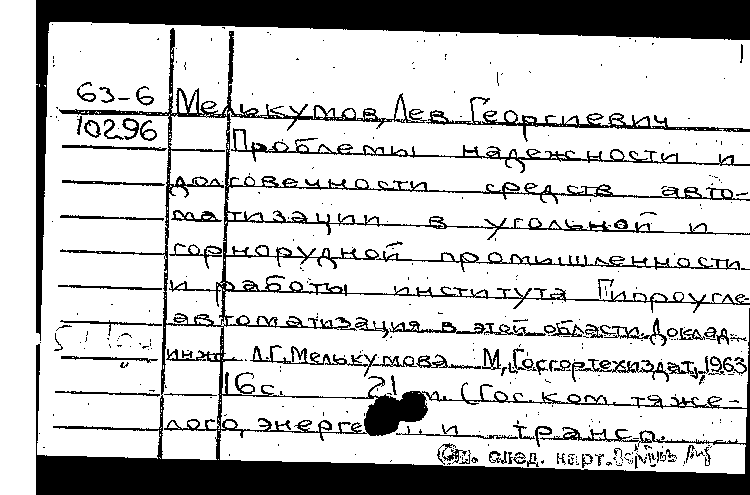 63-6 Мелькумов, Лев Георгиевич
10296 Проблемы надежности и
долговечности средств авто-
матизации в угольной и
горнорудной промышленности
и работы института Гипроугле
автоматизация в этой области. Доклад
инж. Л.Г. Мелькумова М., Госгортехиздат, 1963
16с. 21 см. (Гос. ком. тяже-
лого, энерге и трансп.
См. след. карт.